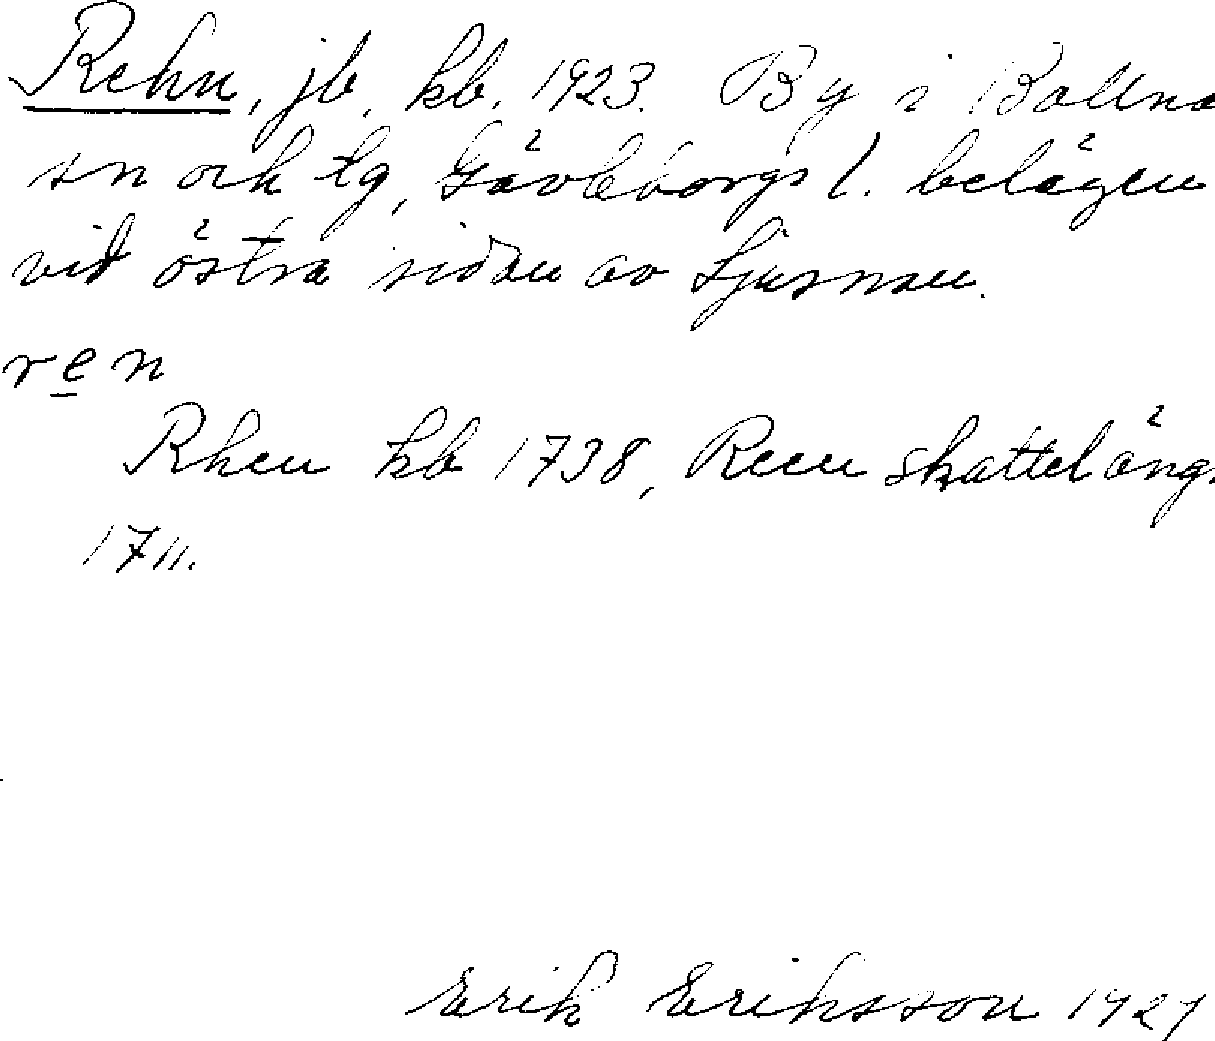 Rehn, jb, kb. 1923. By i Bollnä
sn och tg, Gävleborgs l. belägen
vid östra sidan av Ljusnan.
ren
Rhen kb 1738, Reen skatteläng.
1711.
Erik Eriksson 1927